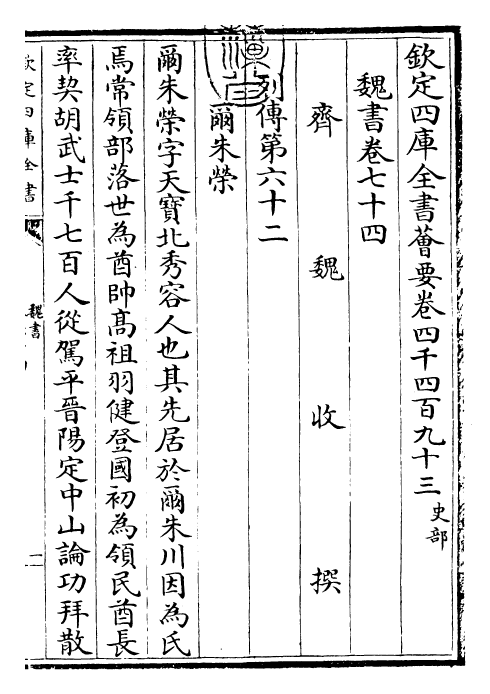 欽定四庫全書薈要卷四千四百九十三 史部
魏書卷七十四
齊 魏 收 撰
列傳第六十二
爾朱榮
爾朱榮字天寶北秀容人也其先居於爾朱川因為氏
焉常領部落世為酋帥高祖羽健登國初為領民酋長
率契胡武士千七百人從駕平晉陽定中山論功拜散
欽定四庫全書
魏書
一